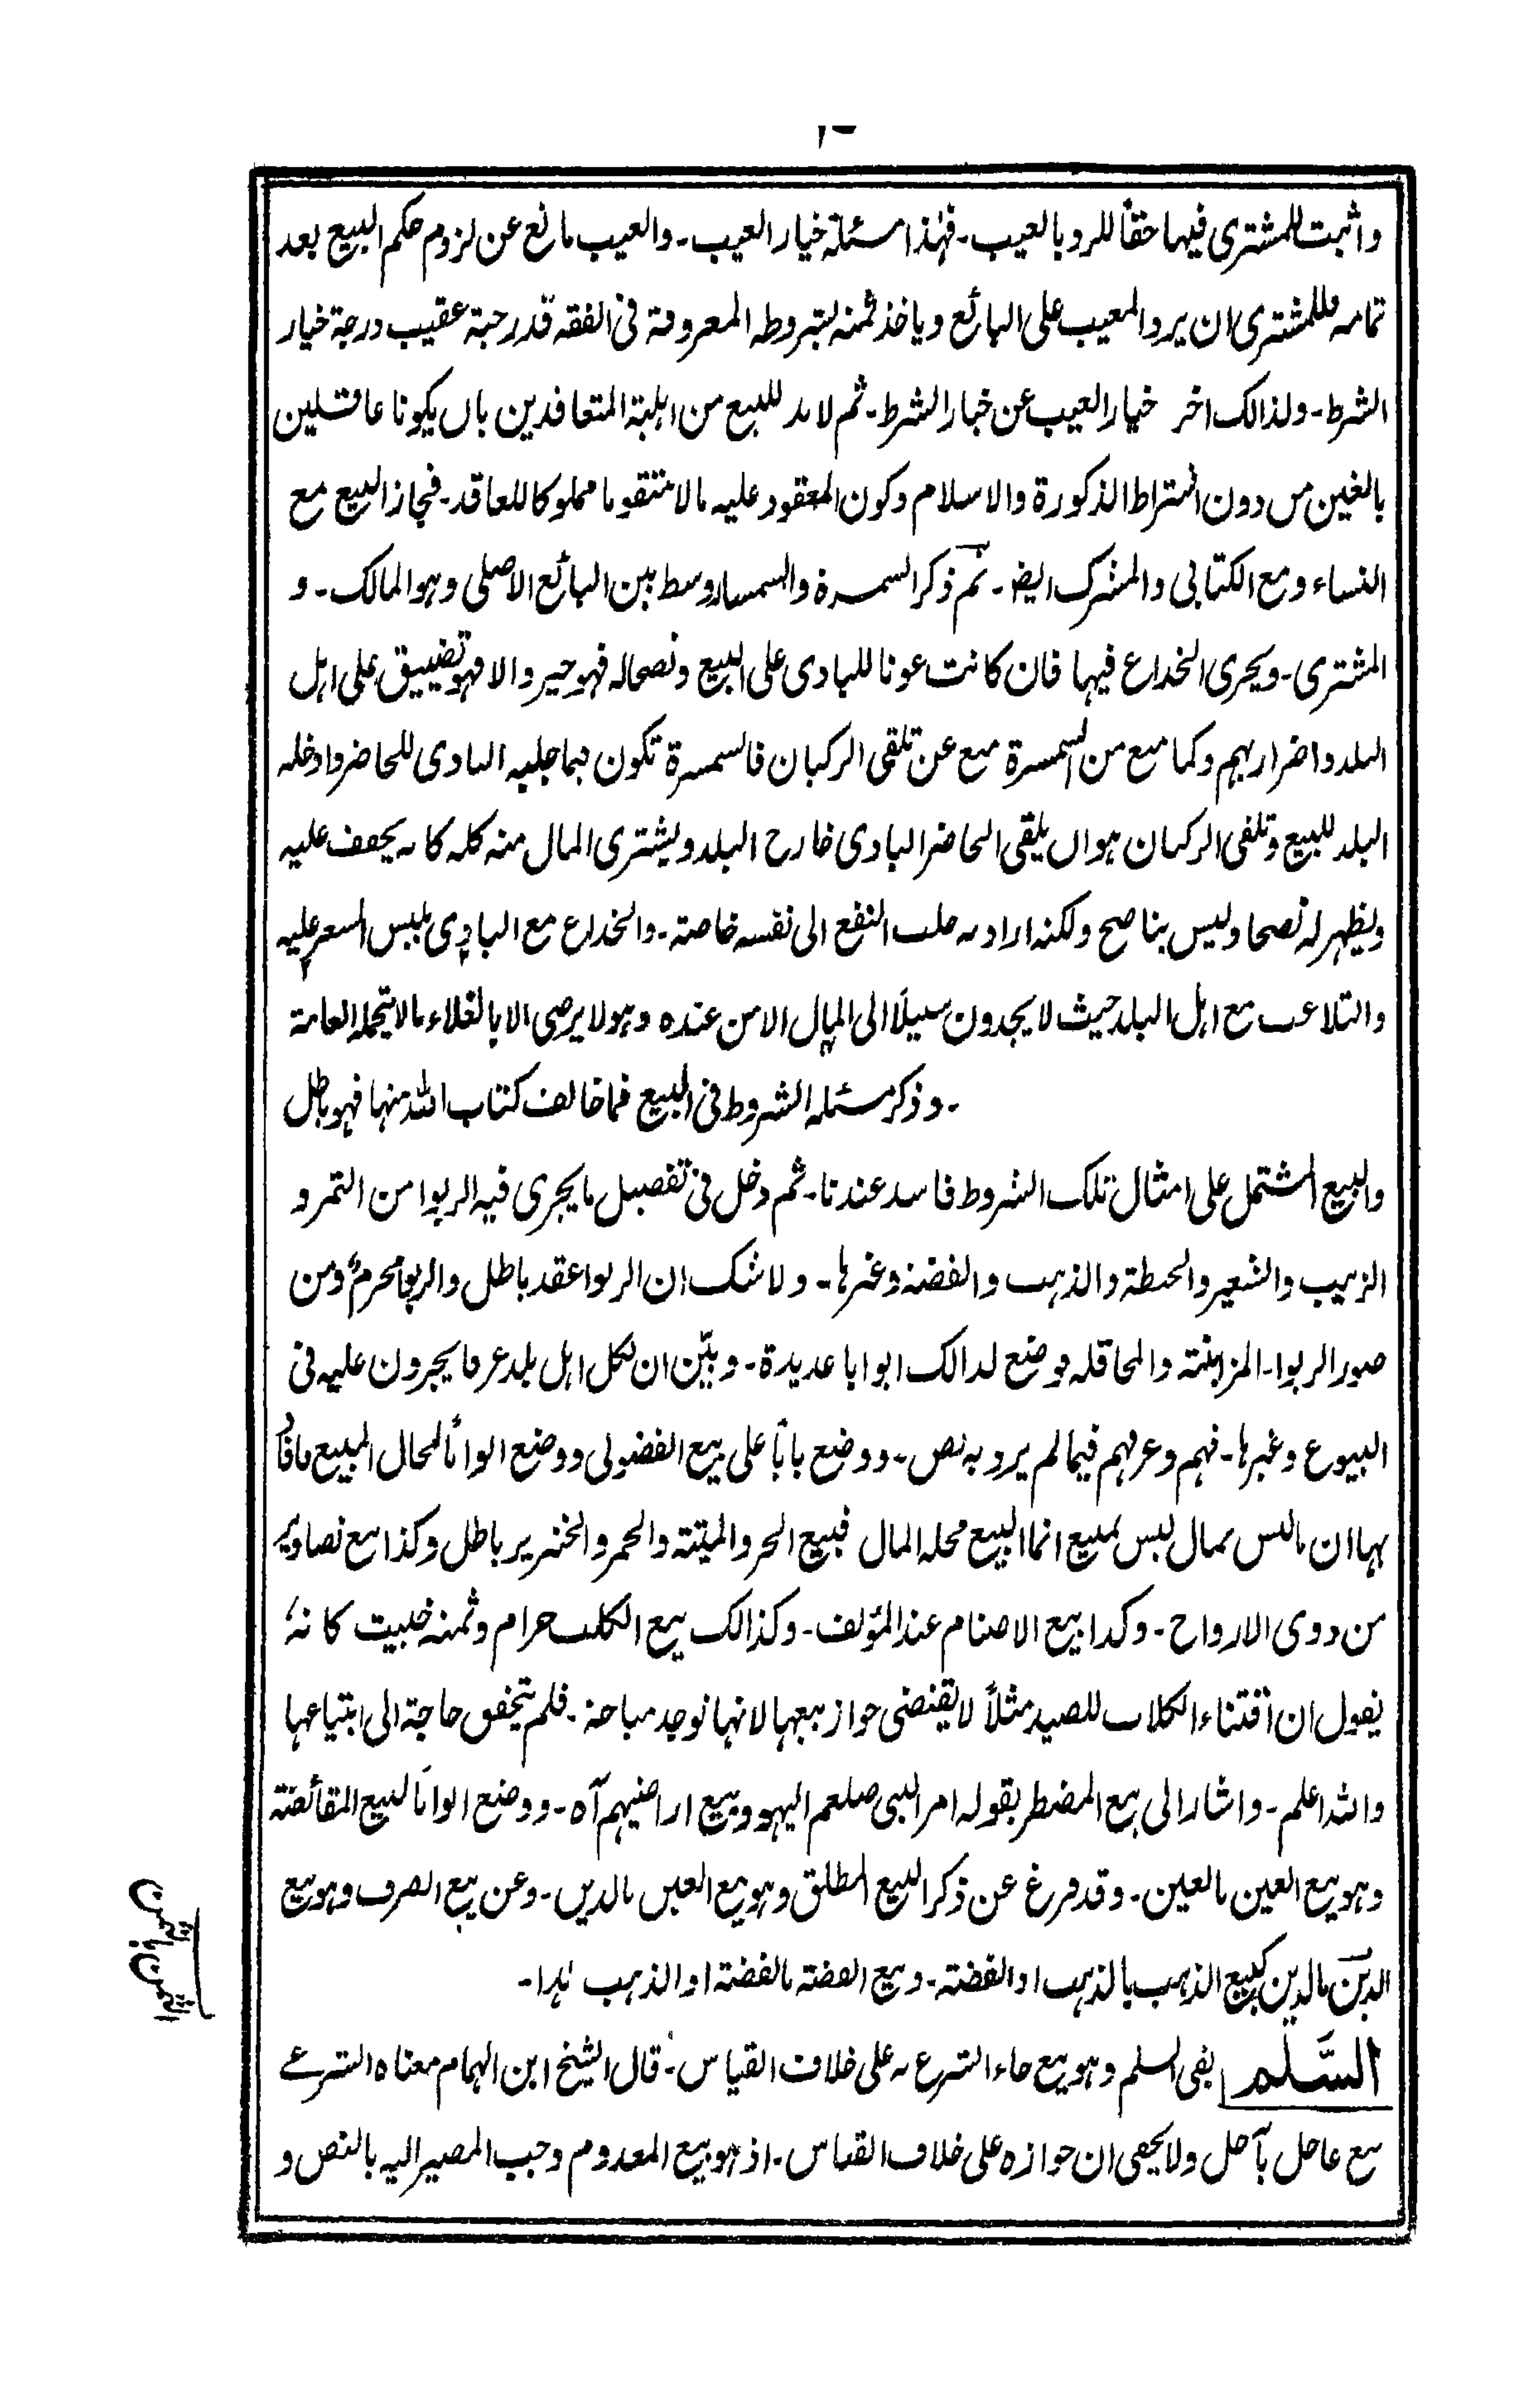 واثبت للمشتری فیہا حقًا للرد بالعیب۔ فہٰذا مسئلة خیار العیب۔ والعیب مانع عن لزوم حکم البیع بعد
تمامہ فللمشتری ان یرد المعیب علی البائع ویاخذ ثمنہ بشروطہ المعروفة فی الفقہ قدر حبة عقیب درجة خیار
الشرط۔ ولذالک اخر خیار العیب عن خیار الشرط۔ ثم لابد للبیع من اہلیة المتعاقدین بان یکونا عاقلین
بالغین من دون اشتراط الذکورة والاسلام وکون المعقود علیہ مالا متقوما مملوکا للعاقد۔ فجاز البیع مع
النساء ومع الکتابی والمشرک ایضا۔ ثم ذکر السمسرة والسمسار وسط بین البائع الاصلی وہو المالک۔ و
المشتری۔ ویجری الخداع فیہا فان کانت عونا للبادی علی البیع ونصحالہ فہو خیر والا فہو تضییق علی اہل
البلد واضرار بہم وکما منع من السمسرة منع عن تلقی الرکبان فالسمسرة تکون فیما جلبہ البادی للحاضر وادخلہ
البلد للبیع وتلقی الرکبان ہو ان یلقی الحاضر البادی خارج البلد ویشتری المال منہ کلہ کانہ یخفف علیہ
ویظہر لہ نصحا ولیس بناصح ولکنہ ارادبہ جلب النفع الی نفسہ خاصة۔ والخداع مع البادی بلبس السعر علیہ
والتلاعب مع اہل البلد حیث لا یجدون سبیلًا الی المال الا من عندہ وہو لا یرضی الا بالغلاء مالا یتحملہ العامة
۔ وذکر مسئلہ الشروط فی البیع فما خالف کتاب اللہ منہا فہو باطل
والبیع المشتمل علی امثال تلک الشروط فاسد عندنا۔ ثم دخل فی تفصیل ما یجری فیہ الربوا من التمر و
الزبیب والشعیر والحنطة والذہب والفضة وغیرہا۔ ولاشک ان الربوا عقد باطل والربوا محرم ومن
صور الربوا۔ المزابنة والمحاقلہ فوضع لذالک ابوابا عدیدة۔ وبیّن ان لکل اہل بلد عرفا یجرون علیہ فی
البیوع وغیرہا۔ فہم وعرفہم فیما لم یرد بہ نص۔ ووضع بابًا علی بیع الفضولی ووضع ابوابًا لمحال البیع فافاد
بہا ان مالیس بمال لیس بمبیع انما البیع محلہ المال فبیع الحر والمیتة والخمر والخنزیر باطل وکذا بیع تصاویر
من ذوی الارواح۔ وکذا بیع الاصنام عند المؤلف۔ وکذالک بیع الکلب حرام وثمنہ خبیث کانہ
یقول ان اقتناء الکلاب للصید مثلًا لا یقتضی جواز بیعہا لانہا توجد مباحة۔ فلم یتحقق حاجة الی ابتیاعہا
واللہ اعلم۔ واشار الی بیع المضطر بقولہ امر النبی صلعم الیہود بیع اراضیہم آہ۔ ووضع ابوابًا لبیع المقائضة
وہو بیع العین بالعین۔ وقد فرغ عن ذکر البیع المطلق وہو بیع العین بالدین۔ وعن بیع الصرف وہو بیع
الدین بالدین کبیع الذہب بالذہب او الفضة۔ وبیع الفضة بالفضة او الذہب ہٰذا۔
السَّلم بقی السلم وہو بیع جاء الشرع بہ علی خلاف القیاس۔ قال الشیخ ابن الہمام معناہ الشرعے
بیع عاجل بآجل ولا یخفی ان جوازہ علی خلاف القیاس۔ اذ ہو بیع المعدوم وجب المصیر الیہ بالنص و